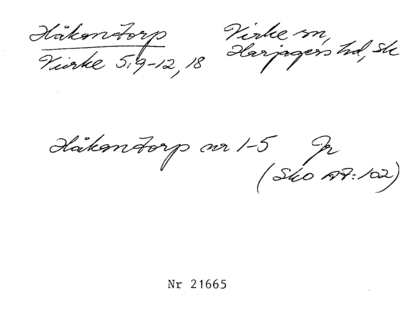 Håkantorp Virke sn,
Virke 5, 9-12, 18 Harjagers hd, Sk
Håkantorp nr 1-5 Jr
(Sko A7:102)
Nr 21665